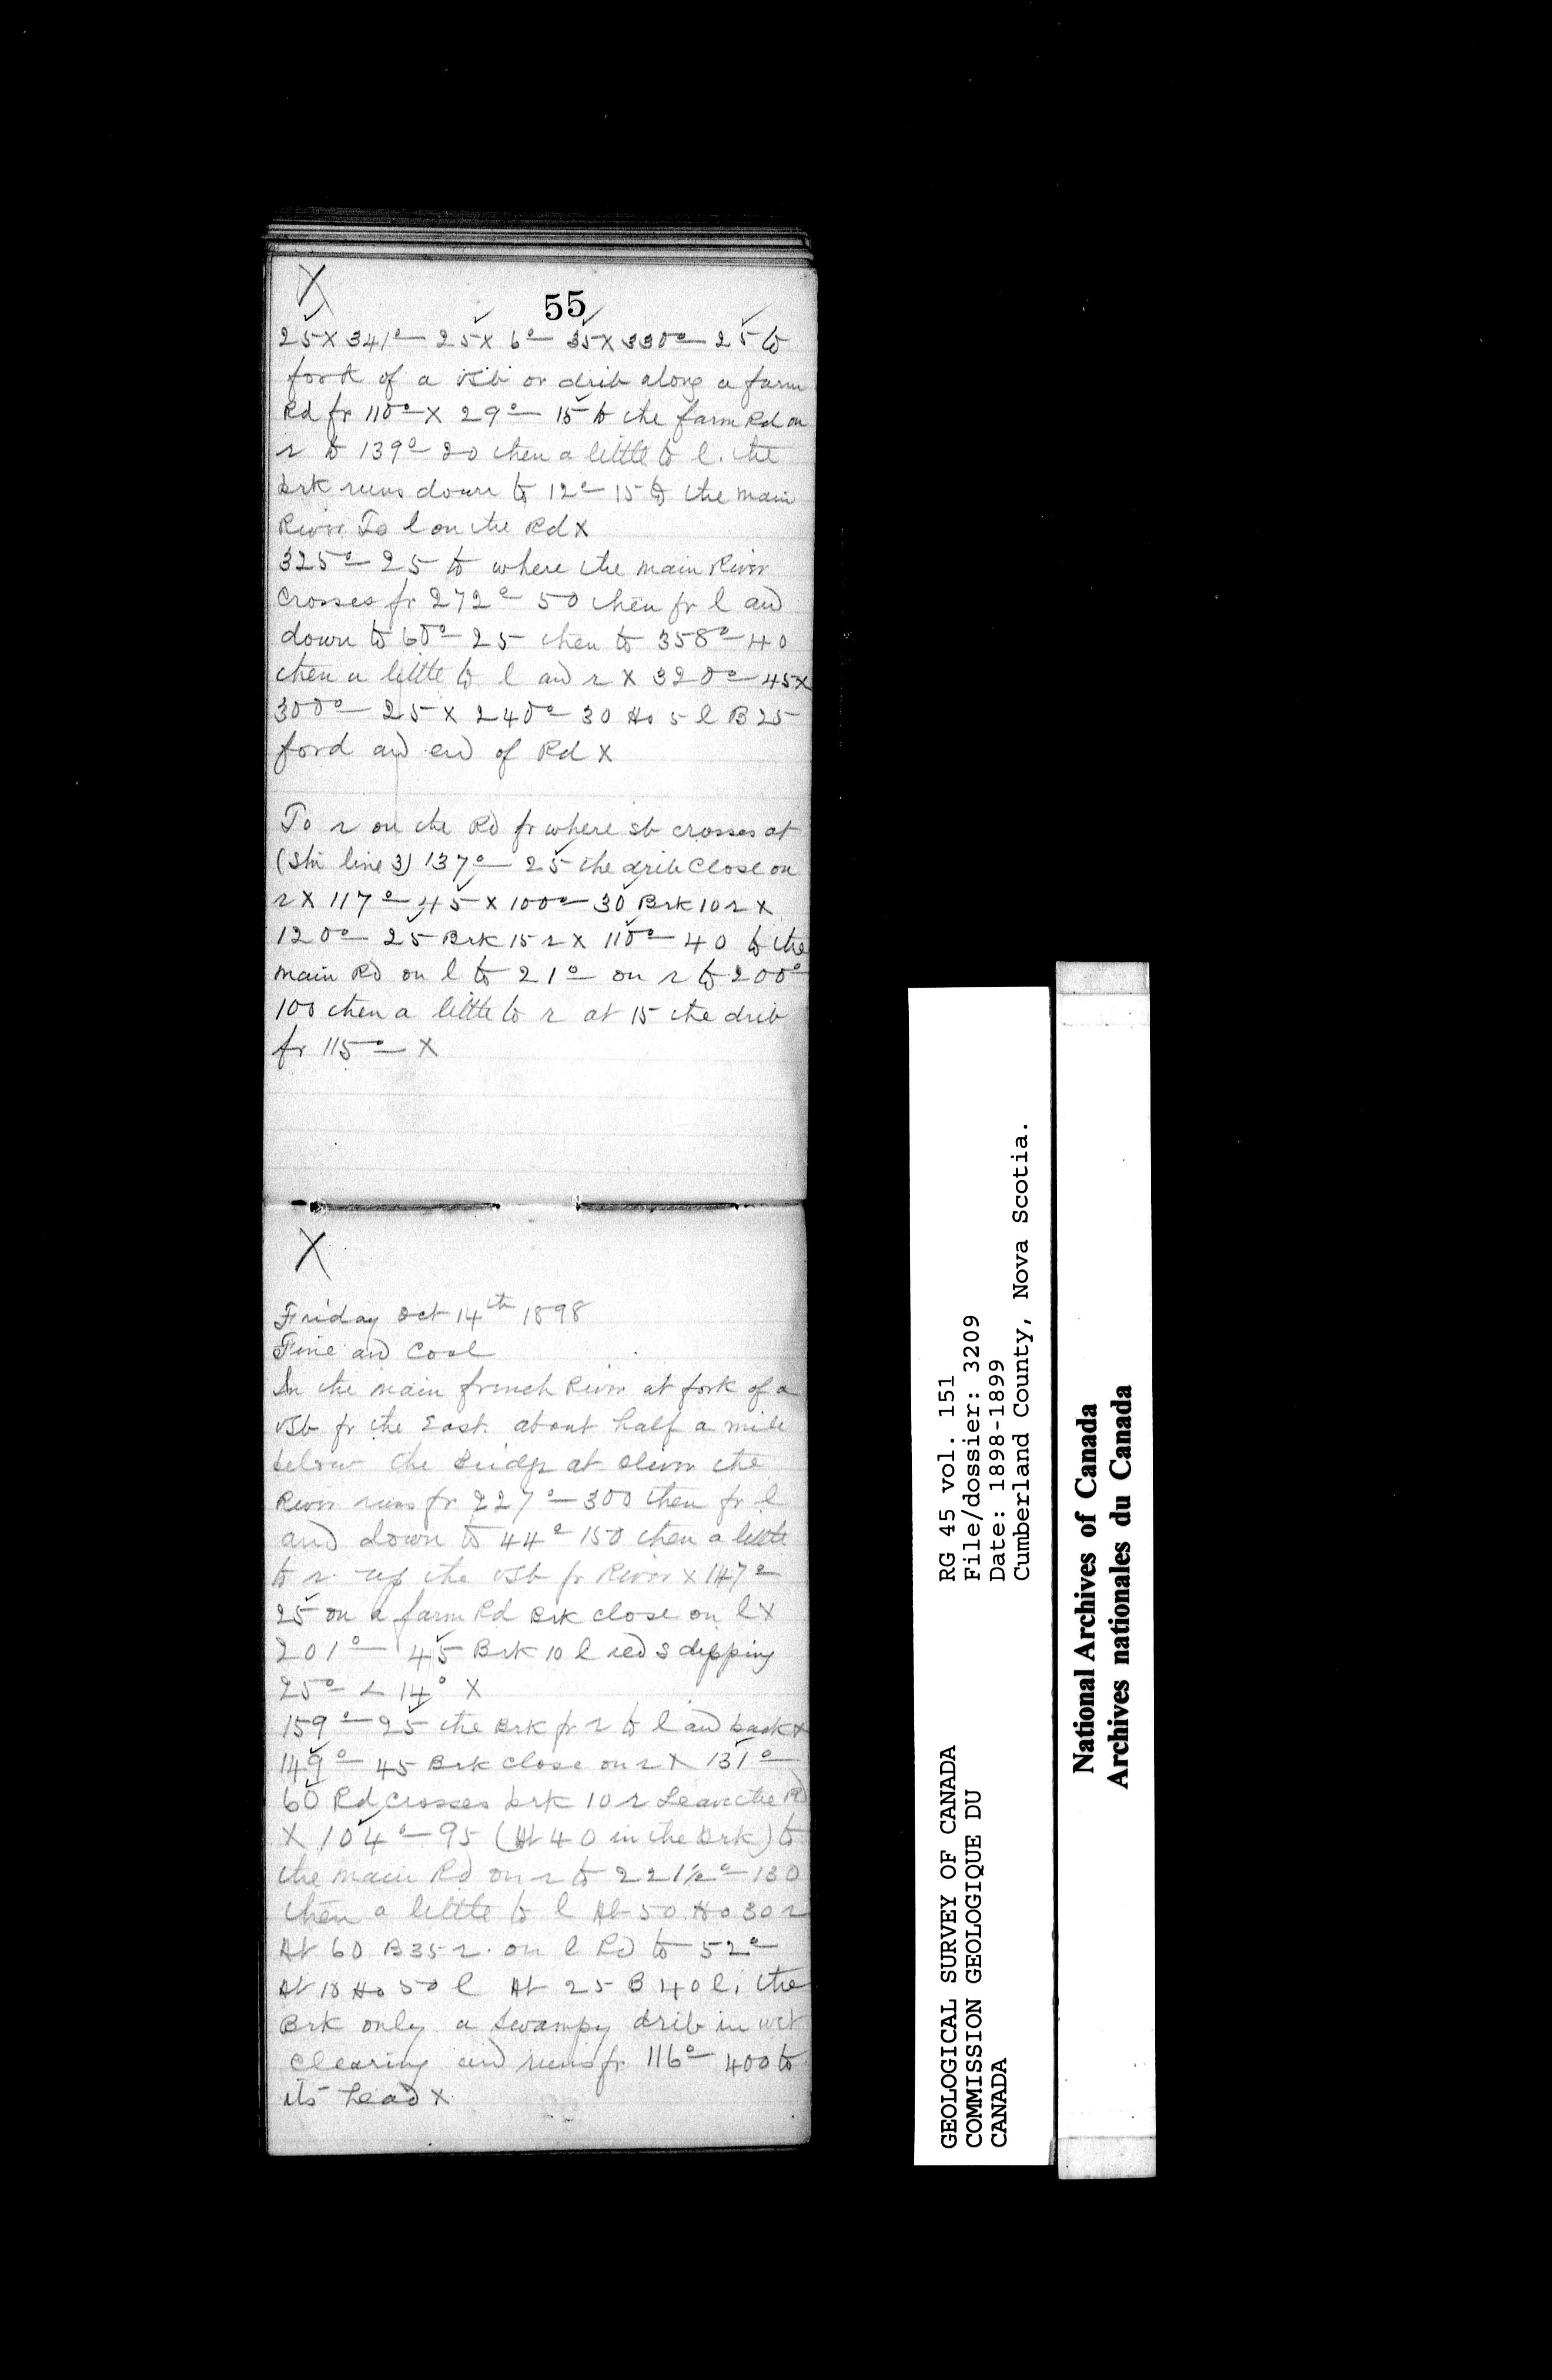 X
55
25 X 341° 25 X 6° 35 X 330° 25 to
fork of a vsb or drib along a farm
Rd fr 110° X 29° 15 to the farm Rd on
r to 139° 20 then a little to l. the
brk runs down to 12° 15 to the main
River To l on the Rd X
325° 25 to where the main River
Crosses fr 272° 50 then fr l and
down to 60° 25 then to 358° 40
then a little to l and r X 320° 45 X
300° 25 X 240° 30 Ho 5 l B 25
ford and end of Rd X
To r on the Rd fr where sb crosses at
(Stn line 3) 137° 25 the drib Close on
r X 117° 45 X 100° 30 Brk 10 r X
120° 25 Brk 15 r X 110° 40 to the
main Rd on l to 21° on r to 200°
100 then a little to r at 15 the drib
fr 115° X
X
Friday Oct 14th 1898
Fine and Cool
In the main french River at fork of a
vsb fr the East. about half a mile
below the Bridge at Oliver the
River runs fr 227° 300 then fr l
and down to 44° 150 then a little
to r. up the vsb fr River X 147°
25 on a farm Rd Brk close on l X
201° 45 Brk 10 l red S dipping
25° < 14° X
159° 25 the Brk fr r to l and back X
149° 45 Brk close on r X 131°
60 Rd crosses brk 10 r Leave the Rd
X 104° 95 (At 40 in the Brk) to
the main Rd on r to 221½° 130
then a little to l At 50 Ho 30 r
At 60 B 35 r. on l Rd to 52°
At 18 Ho 50 l At 25 B 40 l. the
Brk only a swampy drib in wet
Clearing and runs fr 116° 400 to
its head X
GEOLOGICAL SURVEY OF CANADA
COMMISSION GEOLOGIQUE DU
CANADA
RG 45 vol. 151
File/dossier: 3209
Date: 1898-1899
Cumberland County, Nova Scotia.
National Archives of Canada
Archives nationales du Canada